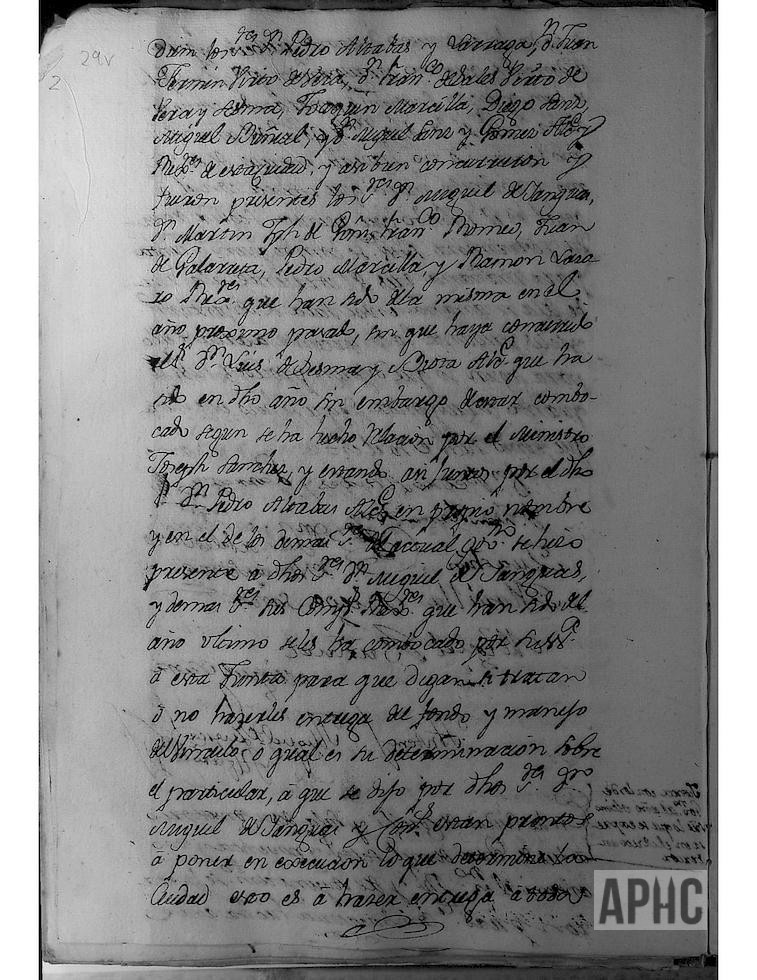 29v
2
los S.res D.n Pedro Alcabas y Larraga, D.n Juan
Fermin Virto de Vera, D.n Fran.co de Sales Virto de
Vera y Lesma, Joaquin Marcilla, Diego Sanz,
Miguel y D.n Miguel Sanz y Gomez Alc.e y
Rex.res de esta ciudad, y asi bien concurrieron y
fueron presentes los S.res D.n Miguel de Sanguas,
D.n Martin Jph de Goñi, Fran.co Romeo, Juan
de Galarreta, Pedro Marcilla, y Ramon Laza
ro Rex.res que han sido de la misma en el
año proximo pasado, sin que haya concurrido
el S.r D.n Luis de Lesma y Alc.e que ha
sido en dho año sin embargo de estar combo-
cado segun se ha hecho Relacion por el Ministro
Joseph Sanchez, y estando asi juntos por el dho
S.r D.n Pedro Alcabas Alc.e en propio nombre
y en el de los demas S.res del actual gov.no se hizo
presente a dhos S.res D.n Miguel de Sanguas,
y demas S.res sus Comp.s Rex.res que han sido del
año ultimo se les ha combocado por su S.a
á esta Junta para que digan si tratan
ó no hazerles entrega del fondo y manejo
del Vinculo ó qual es su determinacion sobre
el particular, á que se dijo por dhos S.res D.n
Miguel de Sanguas y Comp.s estan promtos
á poner en execucion lo que determine la
Ciudad esto es á hazer entrega á
APHC